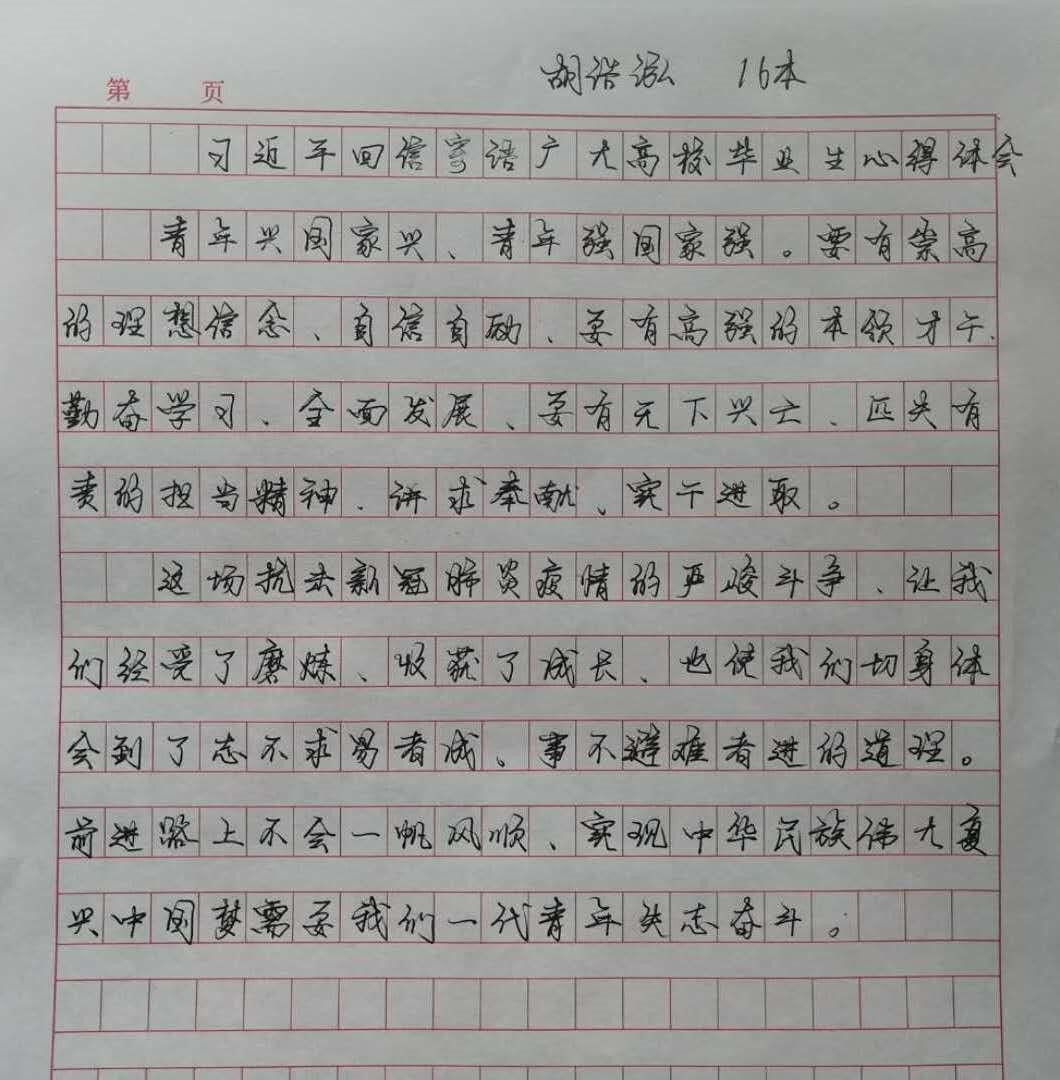 胡浩泓 16本
第 页
习近平回信寄语广大高校毕业生心得体会
青年兴国家兴、青年强国家强。要有崇高
的理想信念、自信自励、要有高强的本领才干、
勤奋学习、全面发展、要有天下兴亡、匹夫有
责的担当精神、讲求奉献、实干进取。
这场抗击新冠肺炎疫情的严峻斗争、让我
们经受了磨炼、收获了成长、也使我们切身体
会到了志不求易者成、事不避难者进的道理。
前进路上不会一帆风顺、实现中华民族伟大复
兴中国梦需要我们一代青年矢志奋斗。